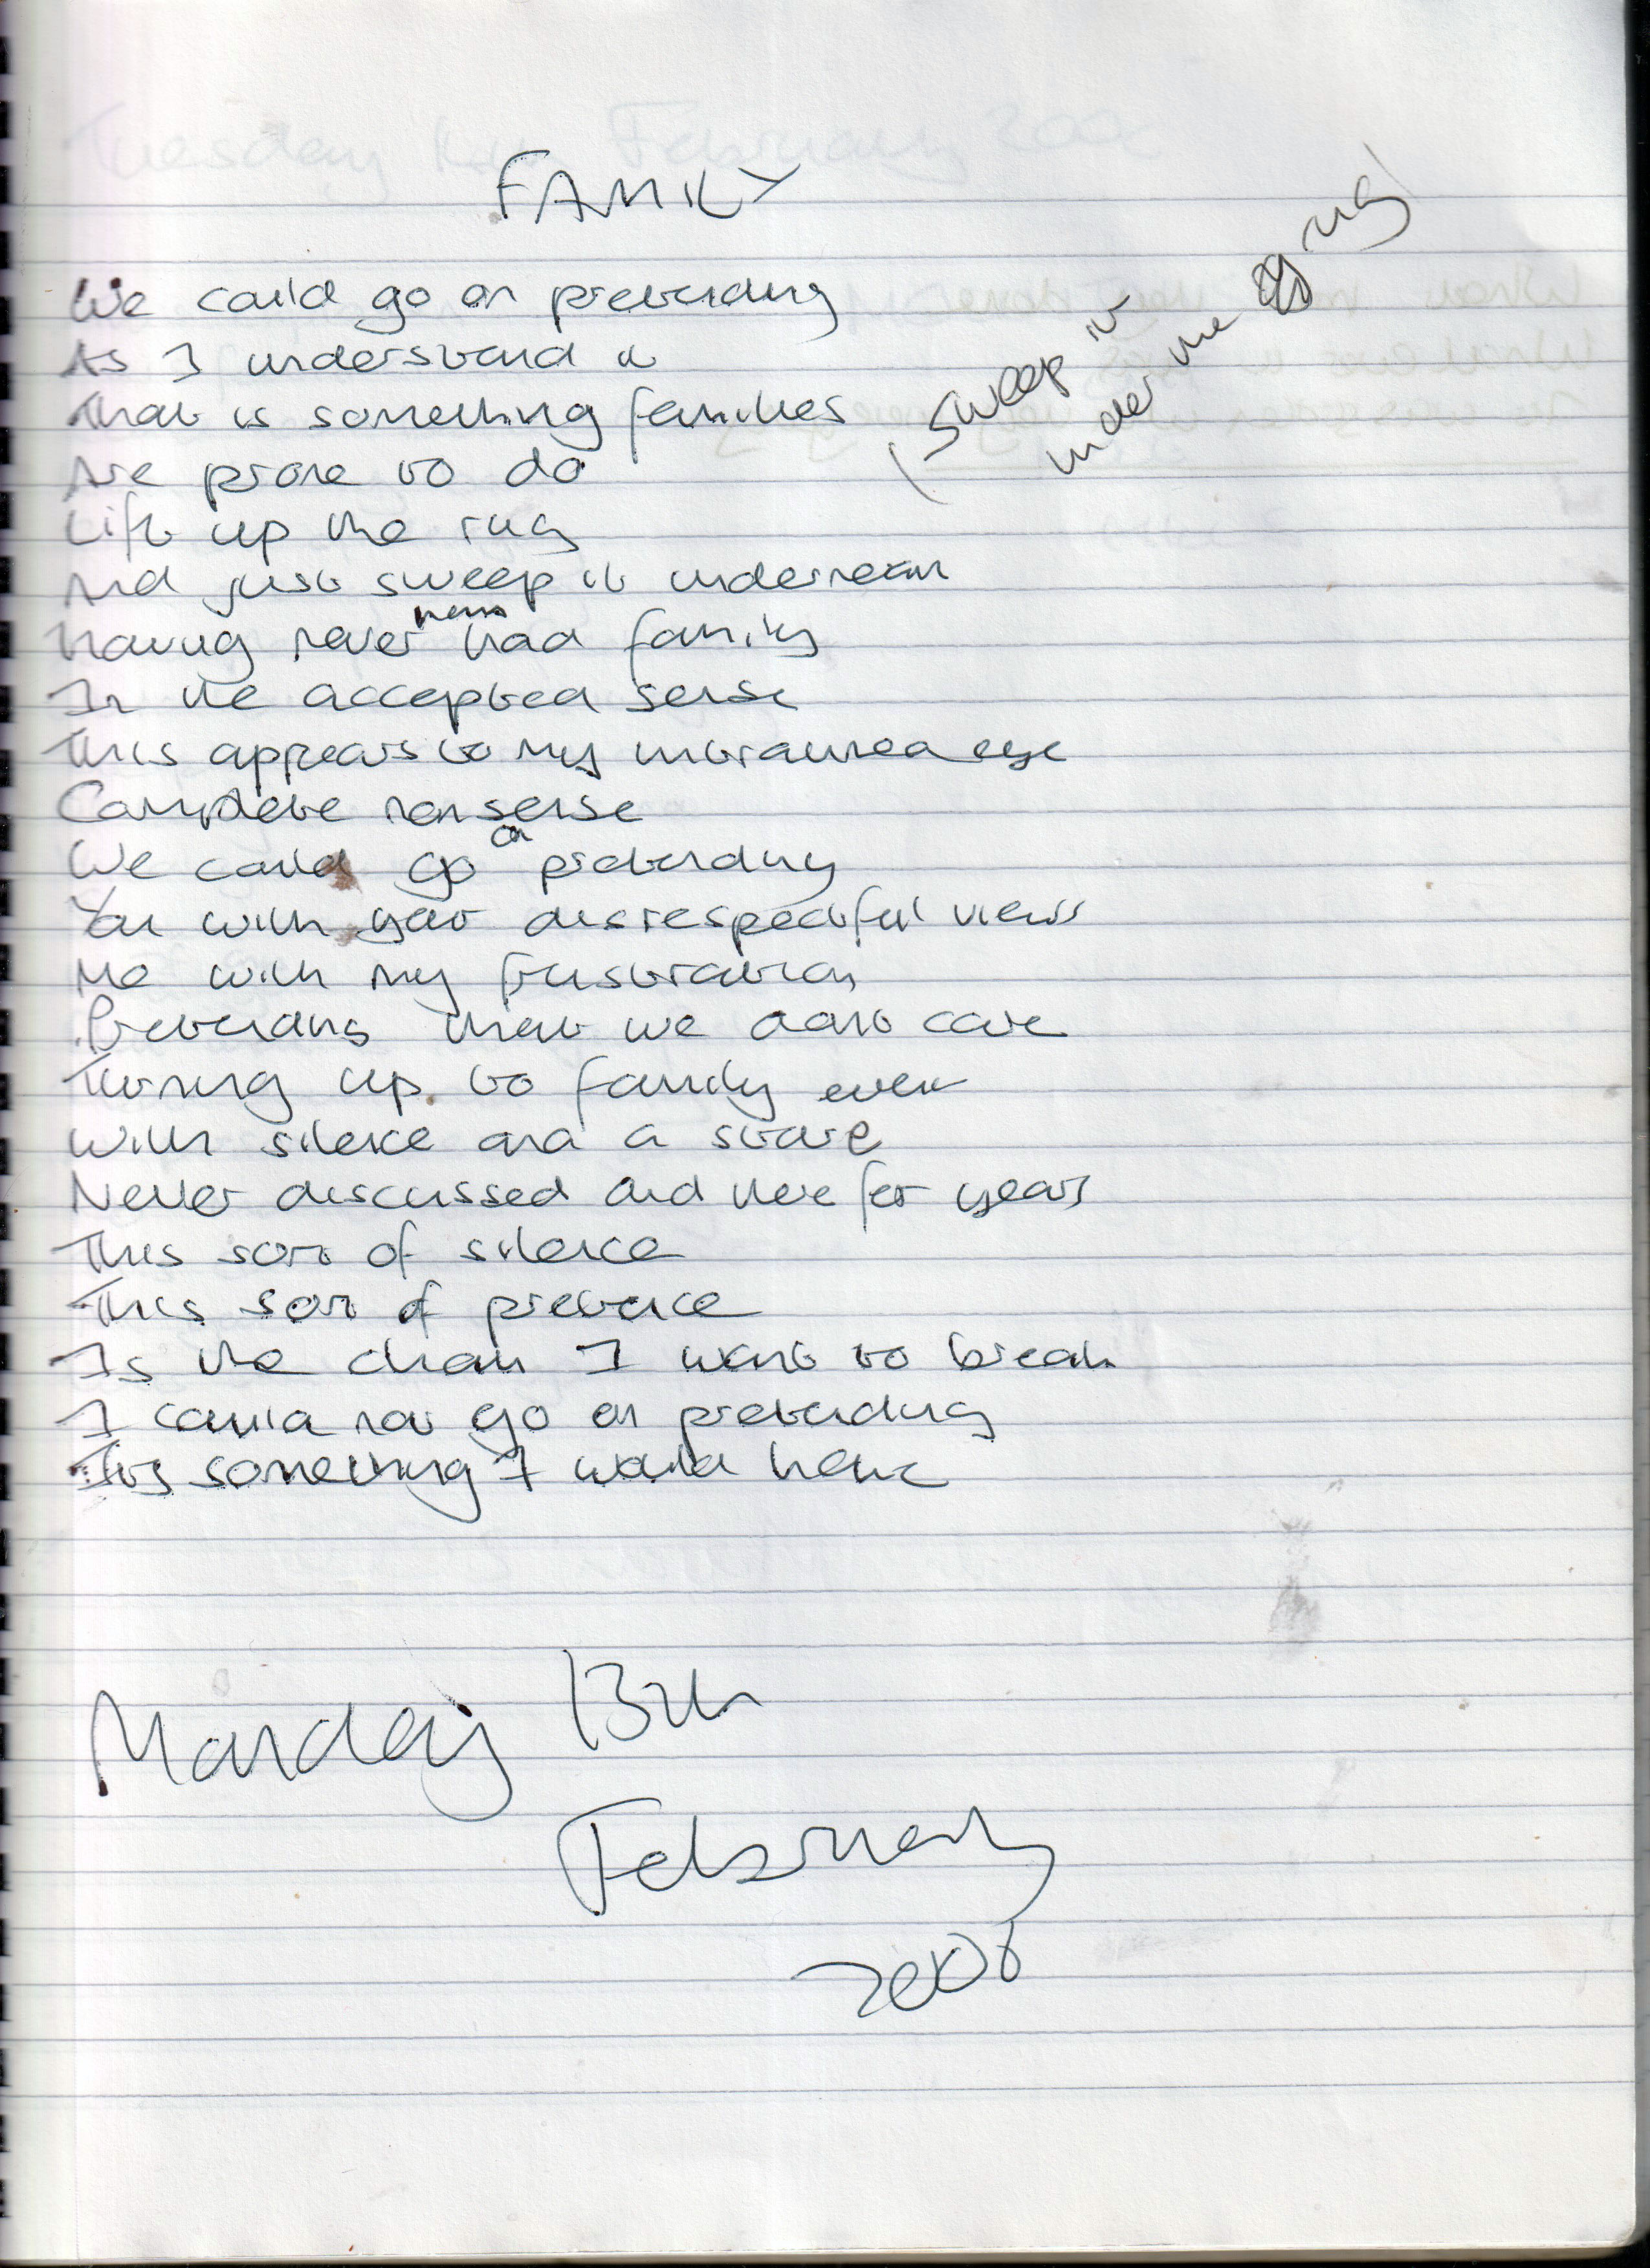 FAMILY
(sweep it
under the rug)
We could go on pretending
As I understand it
That is something families
Are prone to do
Lift up the rug
And just sweep it underneath
Having never had family
In the accepted sense
This appears to my untrained eye
Complete nonsense
We could go on pretending
You with your disrespectful views
Me with my frustration
Pretending that we dont care
Turning up to family event
With silence and a stare
Never discussed and there for years
This sort of silence
This sort of pretence
Is the chain I want to break
I could not go on pretending
Its something I would hate
Monday 13th
February
2006